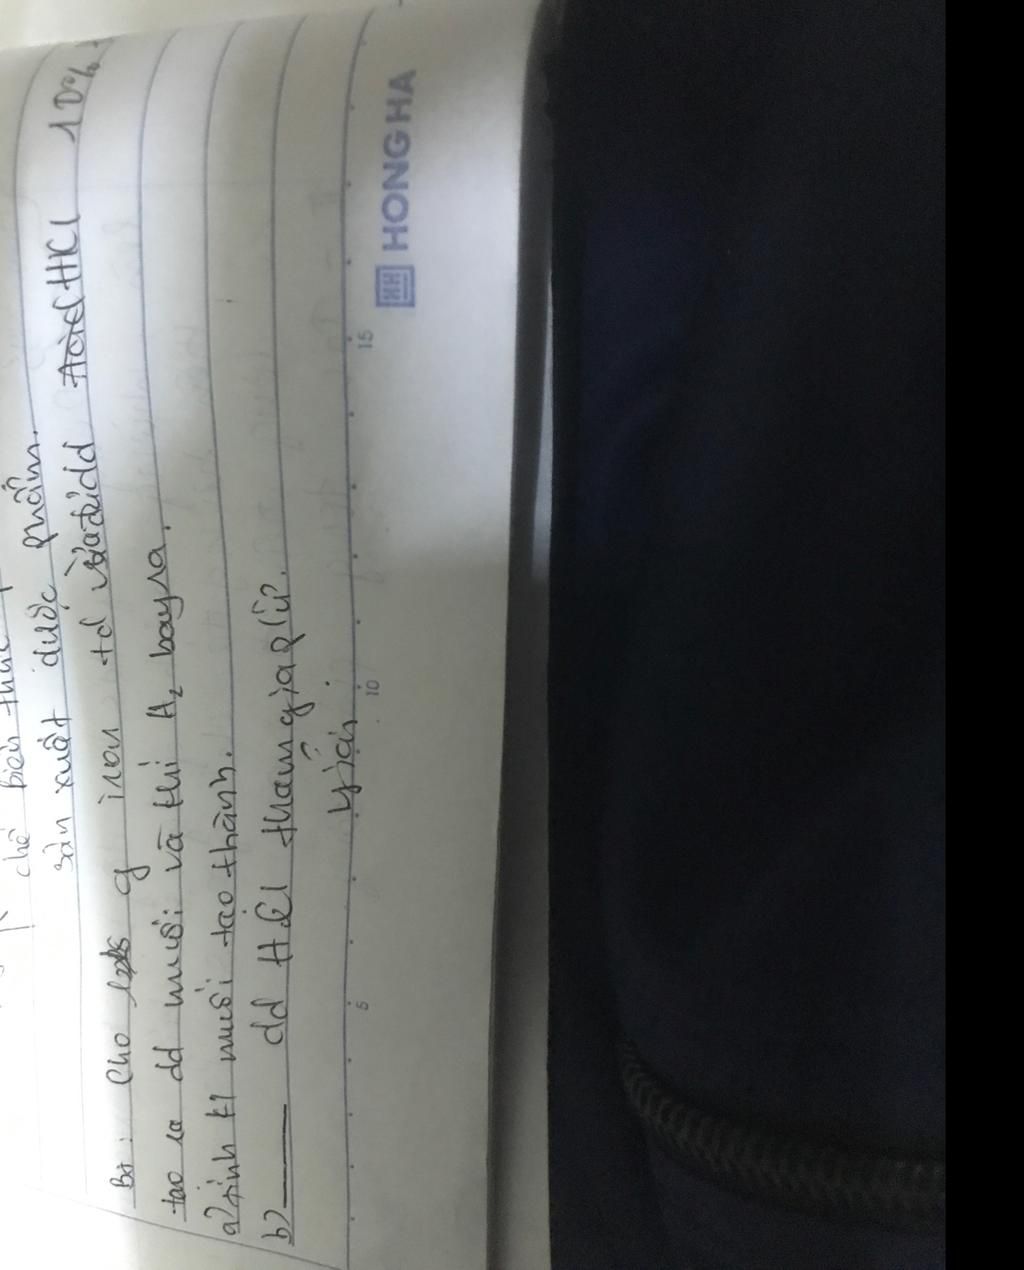 chế biến thức
sản xuất dược phẩm.
Bt: Cho g iron +d vừa đủ dd HCl 10%
tạo ra dd muối và khí H₂ bay ra.
a) tính kl muối tạo thành.
b) —— dd HCl tham gia p/ứ.
Giải.
5 10 15
HONG HA